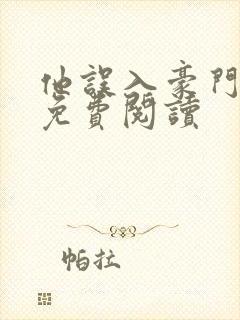 他誤入豪門
免費閱讀
帕拉